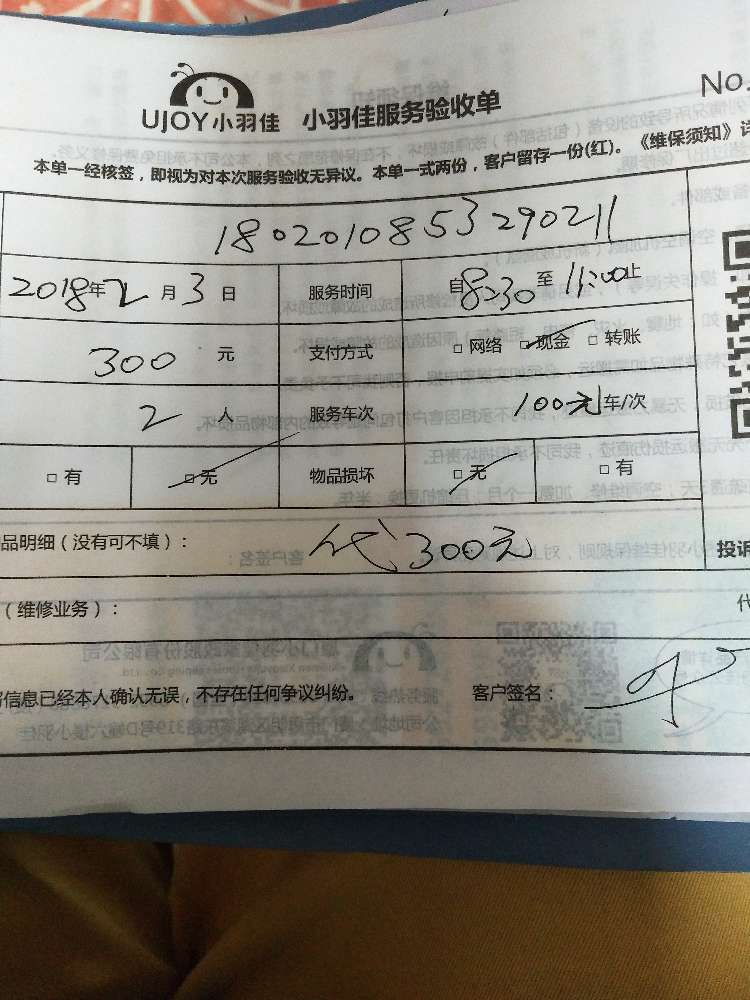 No.
UJOY小羽佳 小羽佳服务验收单
本单一经核签，即视为对本次服务验收无异议。本单一式两份，客户留存一份(红)。《维保须知》详
18020108532902 11
2018年2月3日 服务时间 自8:30至11:00止
300元 支付方式 □网络 □现金 □转账
2人 服务车次 100元车/次
□有 □无 物品损坏 □无 □有
品明细（没有可不填）： 代 300元
投诉
（维修业务）：
代
信息已经本人确认无误，不存在任何争议纠纷。 客户签名：